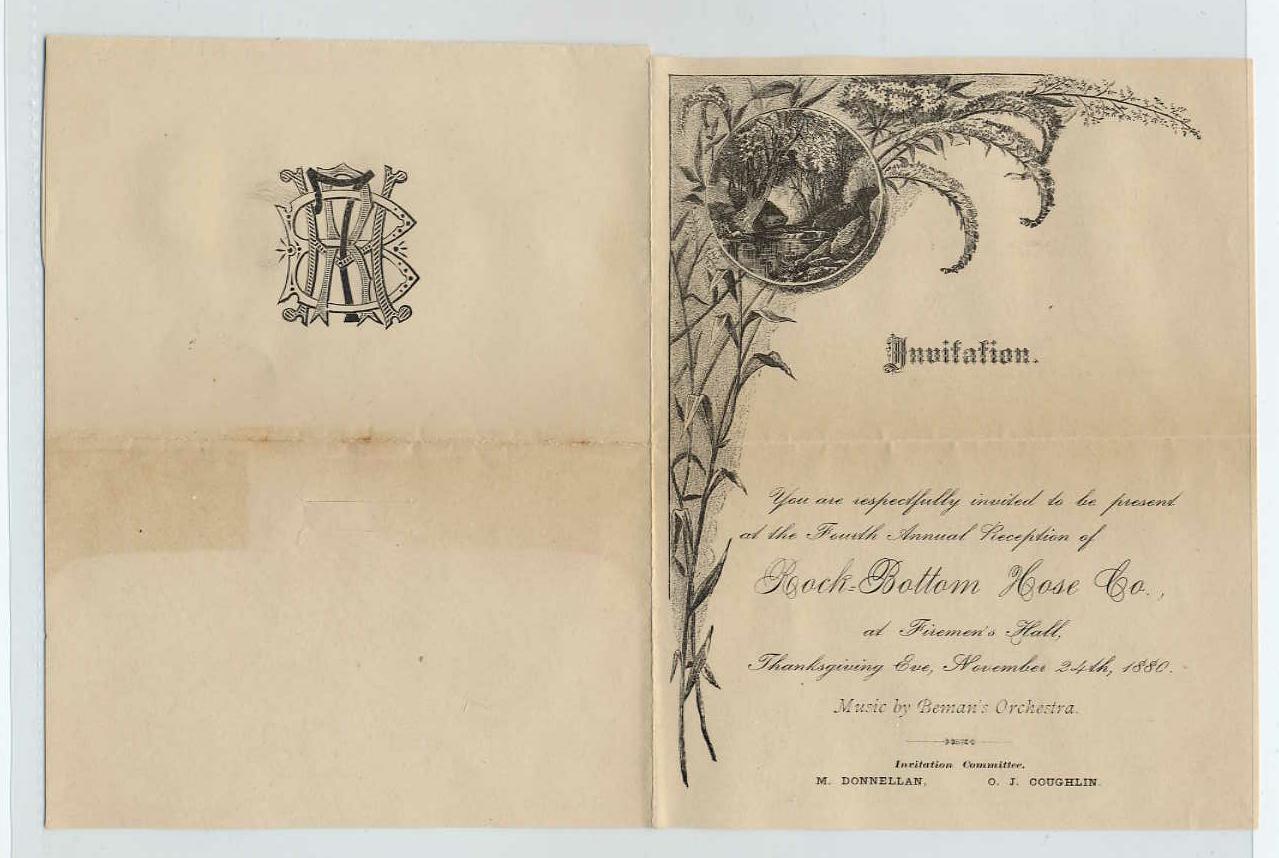 Invitation.
You are respectfully invited to be present
at the Fourth Annual Reception of
Rock-Bottom Hose Co.,
at Firemen's Hall,
Thanksgiving Eve, November 24th, 1880.
Music by Beman's Orchestra.
Invitation Committee.
M. DONNELLAN, O. J. COUGHLIN.